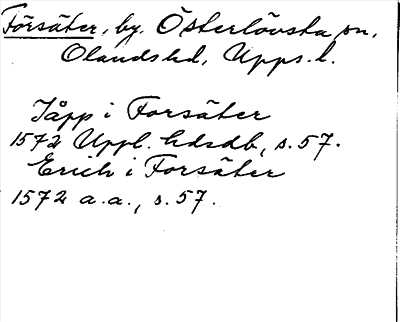 Försäter, by. Österlövsta sn,
Olands hd, Upps. l.
Jåpp i Forsäter
1572 Uppl. hdsdb, s. 57.
Erich i Forsäter
1572 a.a., s. 57.